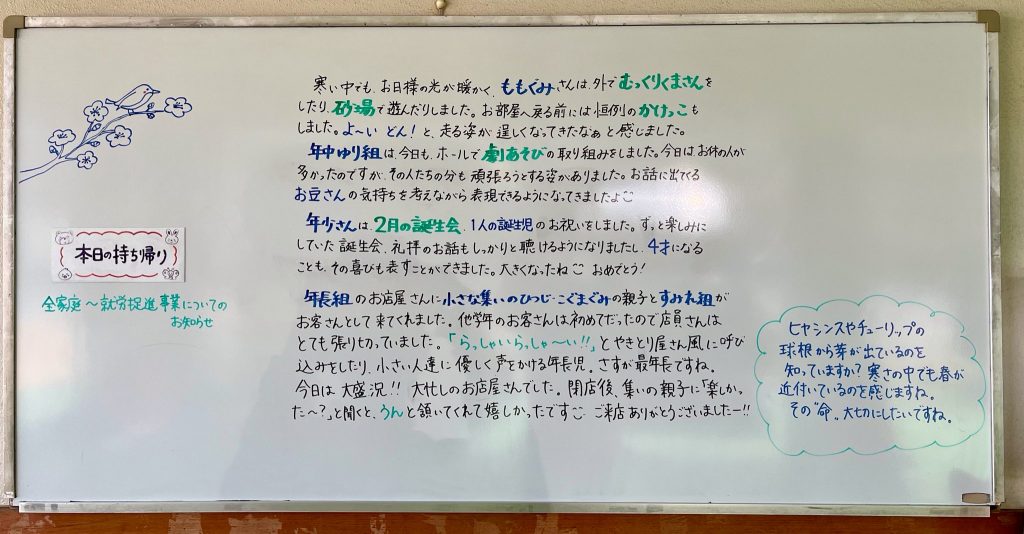 本日の持ち帰り
全家庭〜就労促進事業についての
お知らせ
寒い中でも、お日様の光が暖かく、ももぐみさんは、外でむっくりくまさんを
したり、砂場で遊んだりしました。お部屋へ戻る前には恒例のかけっこも
しました。よ〜い どん！と、走る姿が逞しくなってきたなぁと感じました。
年中ゆり組は、今日も、ホールで劇あそびの取り組みをしました。今日はお休の人が
多かったのですが、その人たちの分も頑張ろうとする姿がありました。お話に出てくる
お豆さんの気持ちを考えながら表現できるようになってきましたよ
年少さんは、2月の誕生会、1人の誕生児のお祝いをしました。ずっと楽しみに
していた誕生会、礼拝のお話もしっかりと聴けるようになりましたし、4才になる
ことも、その喜びも表すことができました。大きくなったね おめでとう！
年長組のお店屋さんに小さな集いのひつじ・こぐまぐみの親子とすみれ組が
お客さんとして来てくれました。他学年のお客さんは初めてだったので店員さんは
とても張り切っていました。「らっしゃいらっしゃ〜い!!」とやきとり屋さん風に呼び
込みをしたり、小さい人達に優しく声をかける年長児。さすが最年長ですね。
今日は大盛況!! 大忙しのお店屋さんでした。閉店後、集いの親子に「楽しかっ
た〜?」と聞くと、うんと頷いてくれて嬉しかったです ご来店ありがとうございましたー!!
ヒヤシンスやチューリップの
球根から芽が出ているのを
知っていますか？寒さの中でも春が
近付いているのを感じますね。
その“命、大切にしたいですね。